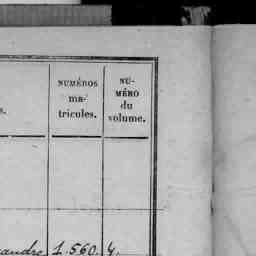 NUMÉROS
ma-
tricules.
NU-
MÉRO
du
volume.
s.
andre 1.560. 4.